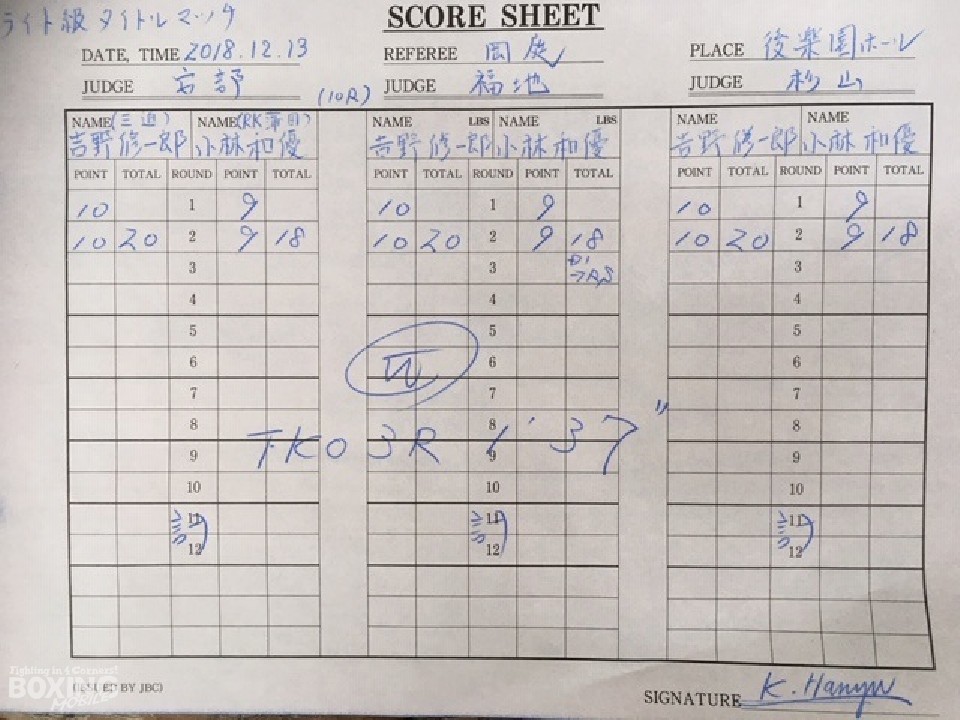 ライト級タイトルマッチ
SCORE SHEET
DATE, TIME 2018.12.13 REFEREE 岡庭 PLACE 後楽園ホール
JUDGE 宮部 (10R) JUDGE 福地 JUDGE 杉山
NAME (三迫) NAME (RK蒲田) NAME LBS NAME LBS NAME NAME
吉野修一郎 小林和優 吉野修一郎 小林和優 吉野修一郎 小林和優
POINT TOTAL ROUND POINT TOTAL POINT TOTAL ROUND POINT TOTAL POINT TOTAL ROUND POINT TOTAL
10 1 9 10 1 9 10 1 9
10 20 2 9 18 10 20 2 9 18 10 20 2 9 18
3 3 3
4 4 4
5 5 5
6 6 6
7 7 7
8 8 8
TKO 3R 1'37"
9 9 9
10 10 10
11 11 11
12 12 12
Fighting in 4 Corners!
BOXING
MOBILE
(ISSUED BY JBC)
SIGNATURE